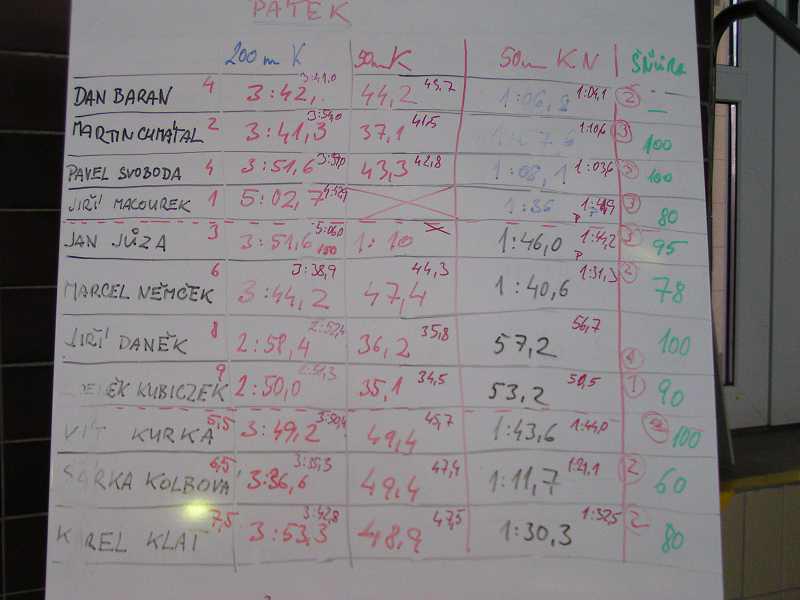 PÁTEK
200m K 50mK 50m KN ŠŇŮRA
DAN BARAN 4 3:42, 3:41,0 44,2 43,7 1:06,8 1:04,1 2 —
MARTIN CHMÁTAL 2 3:41,3 3:54,0 37,1 41,5 1:10,6 3 100
PAVEL SVOBODA 4 3:51,6 43,3 42,8 1:03,6 100
JIŘÍ MACOUREK 1 5:02,7 1:36 3 80
JAN JŮZA 3 3:51,6 5:06,0 1:10 1:46,0 1:44,2 3 95
MARCEL NĚMČEK 6 3:44,2 3:38,9 47,4 44,3 1:40,6 1:31,3 2 78
JIŘÍ DANĚK 8 2:58,4 36,2 35,8 57,2 56,7 4 100
KUBICZEK 9 2:50,0 35,1 34,5 53,2 50,5 1 90
VÍT KURKA 5,5 3:49,2 3:50,4 49,4 45,7 1:43,6 1:44,0 2 100
ŠÁRKA KOLBOVÁ 6,5 3:36,6 3:35,3 49,4 47,4 1:11,7 2 60
KAREL KLAT 7,5 3:53,3 3:42,8 48,9 47,5 1:30,3 1:32,5 2 80